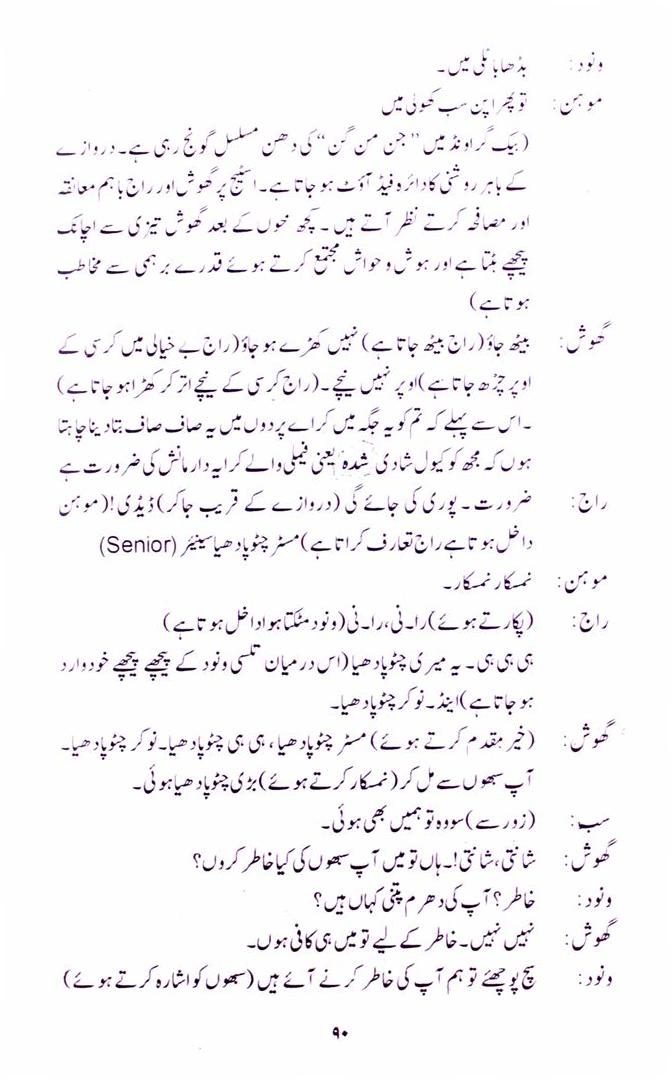 ونود: بڈھا بانلی میں۔
موہن: تو پھر اپن سب کھولی میں
(بیک گراونڈ میں ”جن من گن“ کی دھن مسلسل گونج رہی ہے۔ دروازے
کے باہر روشنی کا دائرہ فیڈ آؤٹ ہو جاتا ہے۔ اسٹیج پر گھوش اور راج باہم معانقہ
اور مصافحہ کرتے نظر آتے ہیں۔ کچھ لمحوں کے بعد گھوش تیزی سے اچانک
پیچھے ہٹتا ہے اور ہوش و حواش مجتمع کرتے ہوئے قدرے برہمی سے مخاطب
ہوتا ہے)
گھوش: بیٹھ جاؤ (راج بیٹھ جاتا ہے) نہیں کھڑے ہو جاؤ (راج بے خیالی میں کرسی کے
اوپر چڑھ جاتا ہے) اوپر نہیں نیچے۔ (راج کرسی کے نیچے اتر کر کھڑا ہو جاتا ہے)
۔اس سے پہلے کہ تم کو یہ جگہ میں کراے پر دوں میں یہ صاف صاف بتا دینا چاہتا
ہوں کہ مجھ کو کیول شادی شدہ یعنی فیملی والے کرایہ دار مانش کی ضرورت ہے
راج: ضرورت۔ پوری کی جائے گی (دروازے کے قریب جا کر) ڈیڈی! (موہن
داخل ہوتا ہے راج تعارف کراتا ہے) مسٹر چٹوپادھیا سینیئر (Senior)
موہن: نمسکار نمسکار۔
راج: (پکارتے ہوئے) را۔نی، را۔نی (ونود مٹکتا ہوا داخل ہوتا ہے)
ہی ہی ہی۔ یہ میری چٹوپادھیا (اس درمیان تلسی ونود کے پیچھے پیچھے خود وارد
ہو جاتا ہے) اینڈ۔ نوکر چٹوپادھیا۔
گھوش: (خیر مقدم کرتے ہوئے) مسٹر چٹوپادھیا، ہی ہی چٹوپادھیا۔ نوکر چٹوپادھیا۔
آپ سبھوں سے مل کر (نمسکار کرتے ہوئے) بڑی چٹوپادھیا ہوئی۔
سب: (زور سے) سو وہ تو ہمیں بھی ہوئی۔
گھوش: شانتی، شانتی!۔ ہاں تو میں آپ سبھوں کی کیا خاطر کروں؟
ونود: خاطر؟ آپ کی دھرم پتنی کہاں ہیں؟
گھوش: نہیں نہیں۔ خاطر کے لیے تو میں ہی کافی ہوں۔
ونود: سچ پوچھئے تو ہم آپ کی خاطر کرنے آئے ہیں (سبھوں کو اشارہ کرتے ہوئے)
۹۰